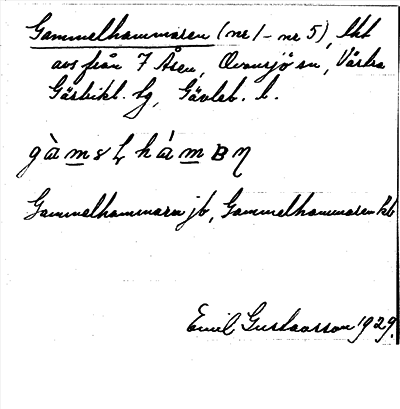 Gammelhammaren (nr 1 – nr 5), lht
avs från 7 Åsen, Ovansjö sn, Västra
Gästrikl. tg, Gävleb. l.
gàmɛl hámBη
Gammelhammaren jb, Gammelhammaren kb
Emil Gustavsson 1929.